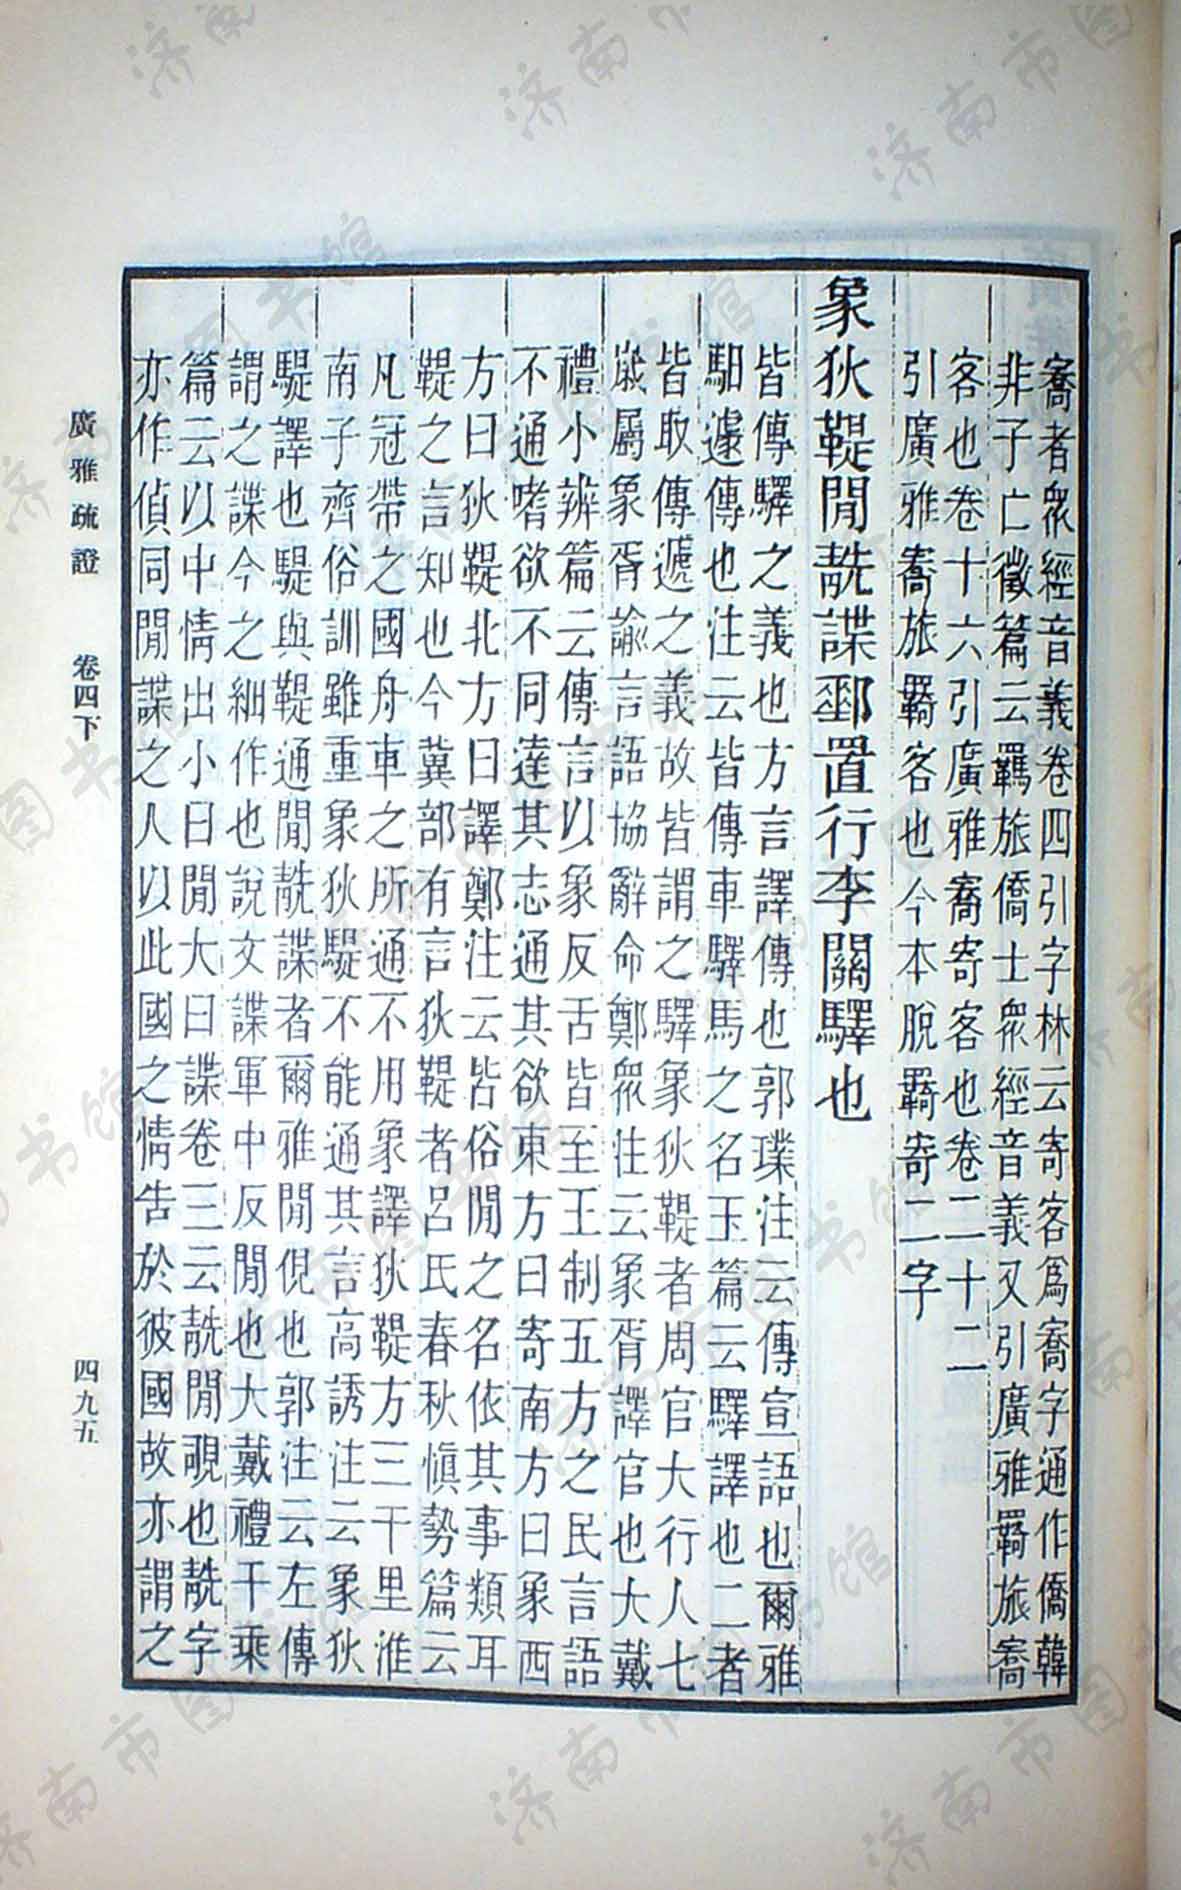 㝯者衆經音義卷四引字林云寄客爲㝯字通作僑韓
非子亡徵篇云羈旅僑士衆經音義又引廣雅羇旅㝯
客也卷十六引廣雅㝯寄客也卷二十二
引廣雅寄旅羇客也今本脫羇寄二字
象狄鞮閒䚚諜郵置行李關驛也
皆傳驛之義也方言譯傳也郭璞注云傳宣語也爾雅
馹遽傳也注云皆傳車驛馬之名玉篇云驛譯也二者
皆取傳遞之義故皆謂之驛象狄鞮者周官大行人七
歲屬象胥諭言語協辭命鄭衆注云象胥譯官也大戴
禮小辨篇云傳言以象反舌皆至王制五方之民言語
不通嗜欲不同達其志通其欲東方曰寄南方曰象西
方曰狄鞮北方曰譯鄭注云皆俗閒之名依其事類耳
鞮之言知也今冀部有言狄鞮者呂氏春秋愼勢篇云
凡冠帶之國舟車之所通不用象譯狄鞮方三千里淮
南子齊俗訓雖重象狄騠不能通其言高誘注云象狄
騠譯也騠與鞮通閒䚚諜者爾雅閒俔也郭注云左傳
謂之諜今之細作也說文諜軍中反閒也大戴禮千乘
篇云以中情出小曰閒大曰諜卷三云䚚閒覗也䚚字
亦作偵同閒諜之人以此國之情告於彼國故亦謂之
廣雅疏證 卷四下 四九五
濟南市图书馆